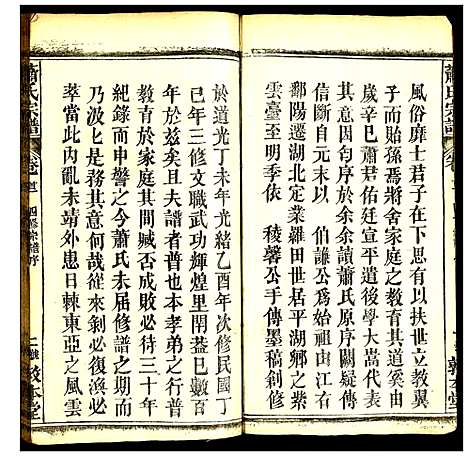 蕭氏宗譜
風俗靡士君子在下思有以扶世立教翼
子而貽孫焉將舍家庭之教育其道奚由
歲辛巳蕭君仿宣平遺後學大嵩代表
其宗因勻序於余余讀蕭氏原序闕疑傳
信斷自元末以 伯謙公爲始祖由江右
鄱陽遷湖北定業羅田世居平湖鄉之紫
雲臺至明季依 稜馨公手傳墨稿創修
敦本堂
於道光丁未年光緒乙酉年次修民國丁
巳年三修文職武功輝煌里閈蓋巳數百
年於兹矣且夫譜者普也本孝弟之行普
教育於家庭其間臧否成敗必待三十年
紀錄而申警之今蕭氏未屆修譜之期而
乃汲匕爲意何哉從來剝必復否必泰
萃當此内亂未靖外患日棘東亞之風雲
蕭氏宗譜
卷首
四修宗譜序
二
敦本堂